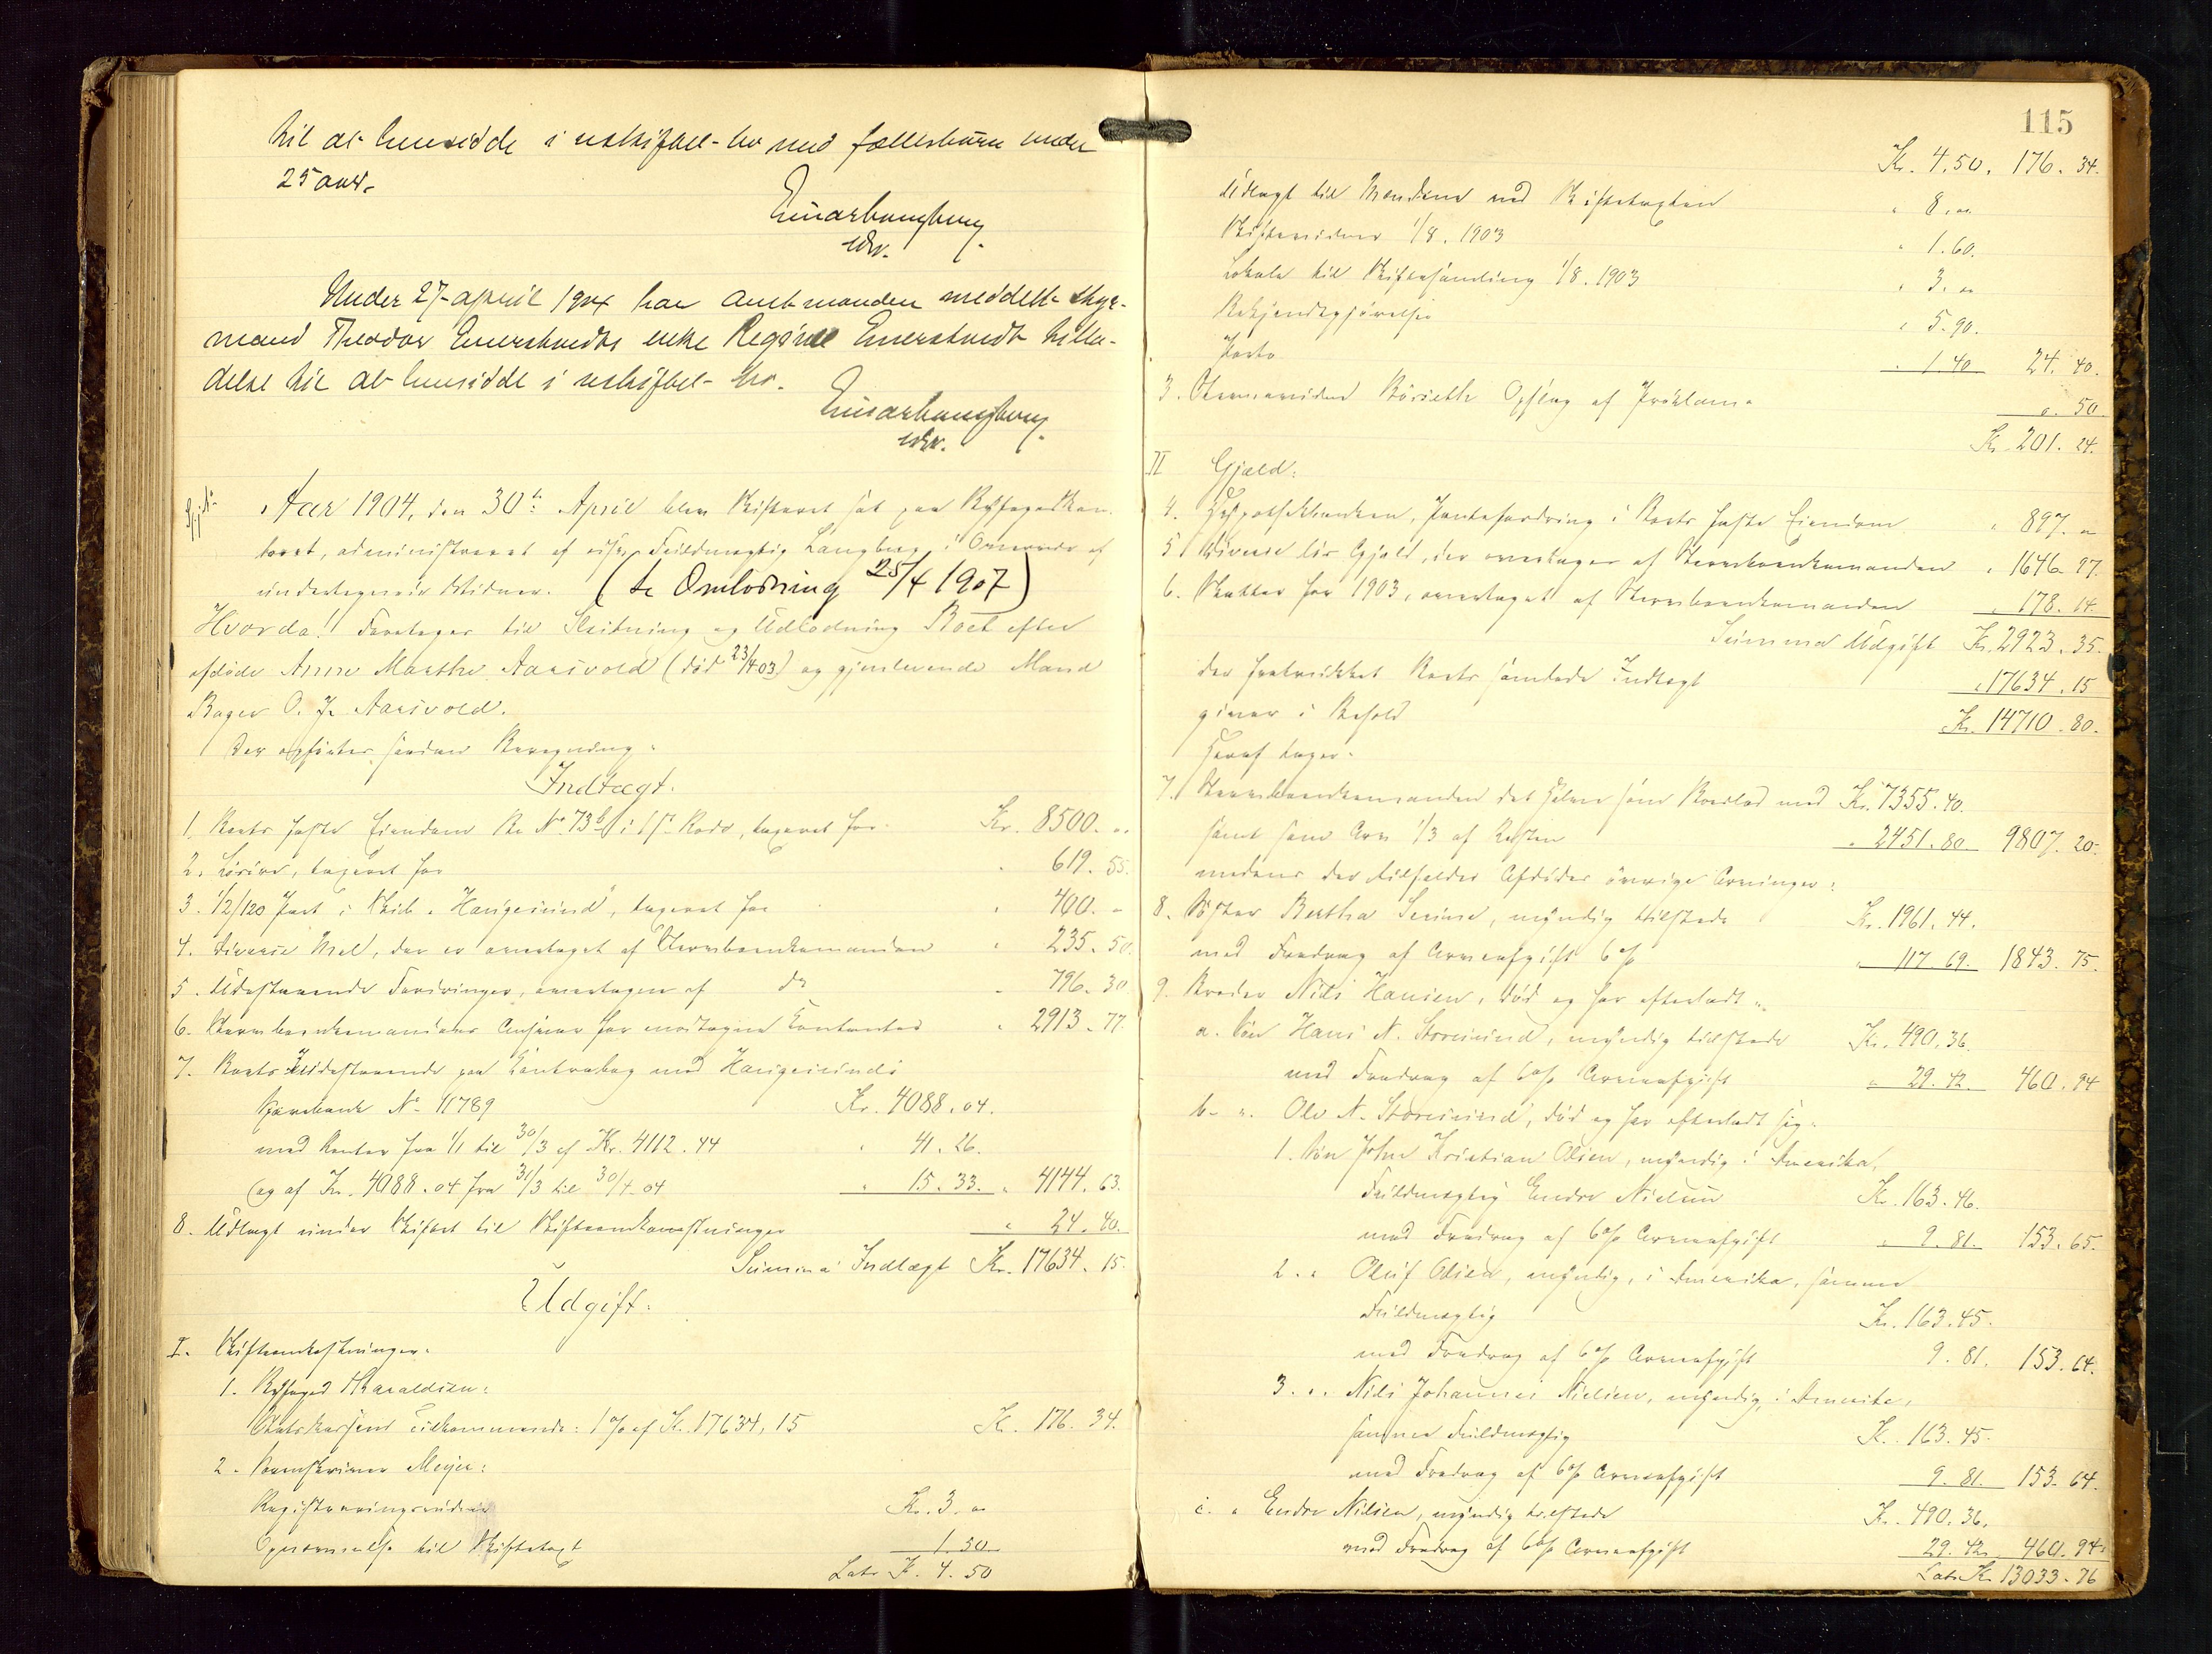 til at hensidde i uskiftet bo med fællesbarn under
25 aar.
Einar Langberg
edv.
Under 27 april 1904 har amtmanden meddelt styr-
mand Theodor Emerstvedts enke Regine Emerstvedt tilla-
delse til at hensidde i uskiftet bo.
Einar Langberg
edv.
Aar 1904, den 30te April blev Skifteret sat paa Byfogedkon-
toret, administreret af edsv. Fuldmægtig Langberg i Overvær af
undertegnede Vidner. (se Omlodning 25/4 1907)
Hvorda! Foretoges til Slutning og Udlodning Boet efter
afdøde Anne Marthe Aarsvold (død 23/4 03) og gjenlevende Mand
Bager O. J. Aarsvold.
Der opførtes saadan Beregning:
Indtægt.
1. Boets faste Eiendom No 73b i 1ste Rode, taxeret for Kr. 8500. "
2. Løsøre, taxeret for " 619. 55.
3. 1/2/120 Part i Skib "Haugesund", taxeret for " 400. "
4. Diverse Mel, der er overtaget af Stervboenkemanden " 235. 50.
5. Udestaaende Fordringer, overtagen af do " 796. 30.
6. Stervboenkemandens Ansvar for modtagne Contanter " 2913. 77.
7. Boets Indestaaende paa Contrabog med Haugesunds
Sparebank No 11789 Kr. 4088. 04.
med Renter fra 1/1 til 30/3 af Kr. 4112. 44 " 41. 26.
og af Kr. 4088. 04 fra 31/3 til 30/4 04 " 15. 33. " 4144. 63.
8. Udlagt under Skiftet til Skifteomkostninger " 24. 40.
Summa Indtægt Kr. 17634. 15.
Udgift.
I. Skifteomkostninger.
1. Byfoged Haraldsen:
Statskassens Tilkommende: 1 % af Kr. 17634, 15 Kr. 176. 34.
2. Sorenskriver Meyer:
Registreringsvidner Kr. 3. "
Opnævnelse til Skiftetaxt 1. 50
Latr. Kr. 4. 50
115
Kr. 4. 50. 176. 34.
Udlagt til Mændene ved Skiftetaxten " 8. "
Skiftevidner 1/8. 1903 " 1. 60.
Lokale til Skiftesamling 1/8. 1903 " 3. "
Bekjendtgjørelse " 5. 90.
Porto " 1. 40 24. 40.
3. Opslag af Proklama " 50
Kr. 201. 24.
II Gjæld.
4. Hypothekbanken, Pantefordring i Boets faste Eiendom " 897. "
5. Diverse løs Gjæld, der overtages af Stervboenkemanden " 1646. 97.
6. Skatter for 1903, overtaget af Stervboenkemanden " 178. 14.
Summa Udgift Kr. 2923. 35.
der fratrukket Boets samlede Indtægt " 17634. 15
giver i Behold Kr. 14710. 80.
Heraf tager:
7. Stervboenkemanden det halve som Boeslod med Kr. 7355. 40.
samt som Arv 1/3 af Resten " 2451. 80. 9807. 20.
medens der tilfalder Afdødes øvrige Arvinger:
8. Søster Bertha Serine, myndig tilstede Kr. 1961. 44.
med Fradrag af Arveafgift 6 % " 117. 69. 1843. 75.
9. Broder Nils Hansen, død og har efterladt:
a. Søn Hans N. Storesund, myndig tilstede Kr. 490. 36.
med Fradrag af 6 % Arveafgift " 29. 42. 460. 94
b. ". Ole N. Storesund, død og har efterladt sig:
1. Søn John Kristian Olsen, myndig i Amerika,
Fuldmægtig Endre Nielsen Kr. 163. 46.
med Fradrag af 6 % Arveafgift " 9. 81. 153. 65.
2. " Oluf Olsen, myndig, i Amerika, samme
Fuldmægtig Kr. 163. 45.
med Fradrag af 6 % Arveafgift 9. 81. 153. 64.
3. ". Nils Johannes Nielsen, myndig, i Amerika,
samme Fuldmægtig Kr. 163. 45.
med Fradrag af 6 % Arveafgift 9. 81. 153. 64.
c. " Endre Nilsen, myndig tilstede Kr. 490. 36.
med Fradrag af 6 % Arveafgift 29. 42. 460. 94.
Latr. Kr. 13033. 76